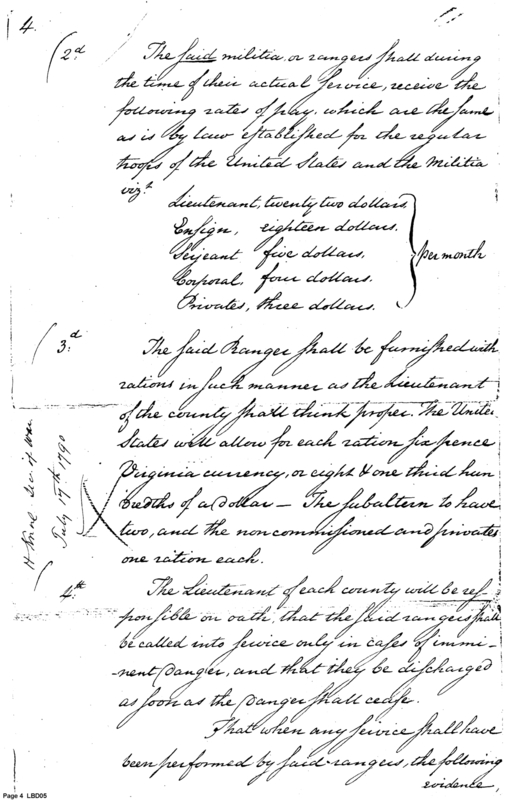 4.
2d. The said militia or rangers shall during
the time of their actual service, receive the
following rates of pay, which are the same
as is by law established for the regular
troops of the United States and the Militia
vizt.
Lieutenant, twenty two dollars,
Ensign, eighteen dollars.
Serjeant five dollars,
Corporal, four dollars.
Privates, three dollars.
per month
3.d The said Ranger shall be furnished with
rations in such manner as the Lieutenant
of the county shall think proper. The United
States will allow for each ration six pence
Virginia currency, or eight & one third hun
dredths of a dollar — The subaltern to have
two, and the noncommissioned and privates
one ration each.
H Knox Sec. of War
July 17th 1790
4.th The Lieutenant of each county will be res
ponsible on oath, that the said rangers shall
be called into service only in cases of immi-
-nent danger, and that they be discharged
as soon as the danger shall cease.
That when any service shall have
been performed by said rangers, the following
evidence,
Page 4 LBD05